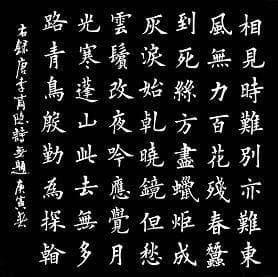 相見時難別亦難東
風無力百花殘春蠶
到死絲方盡蠟炬成
灰淚始乾曉鏡但愁
雲鬢改夜吟應覺月
光寒蓬山此去無多
路青鳥殷勤為探看
右錄唐李商隱詩無題庚寅